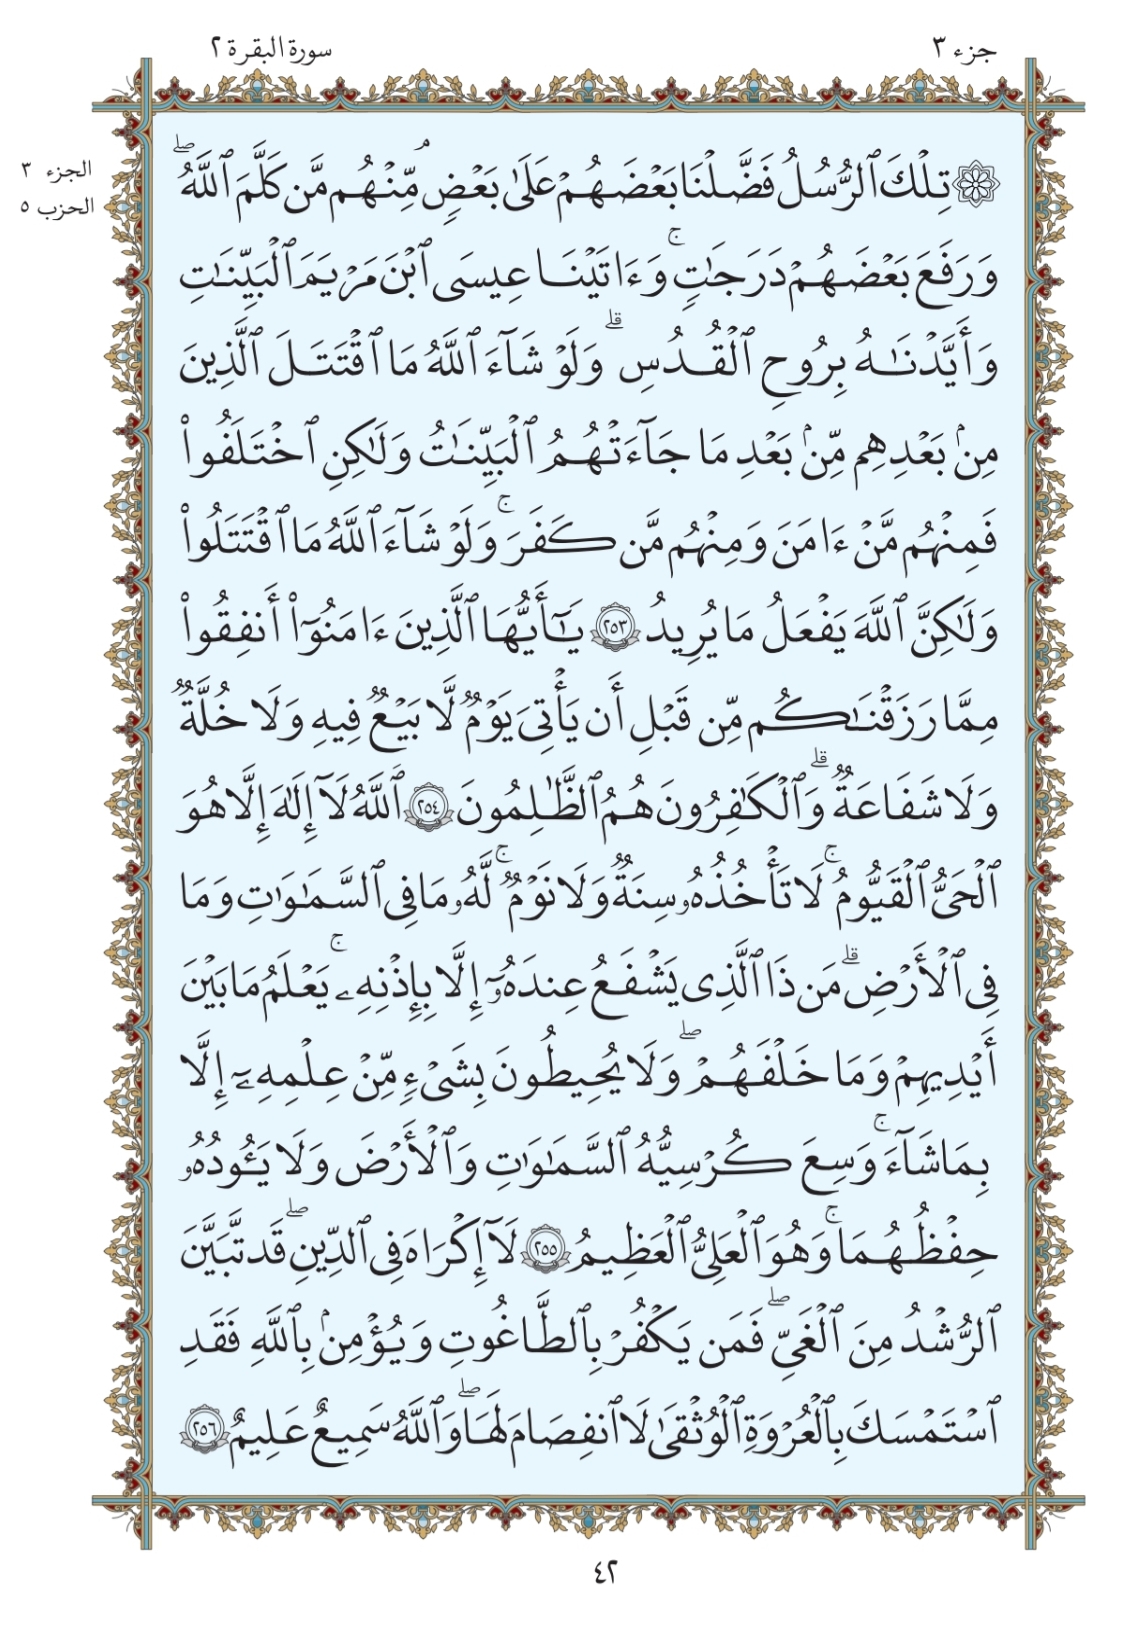 جزء ٣
سورة البقرة ٢
الجزء ٣
الحزب ٥
۞ تِلْكَ ٱلرُّسُلُ فَضَّلْنَا بَعْضَهُمْ عَلَىٰ بَعْضٍۢ مِّنْهُم مَّن كَلَّمَ ٱللَّهُ ۖ
وَرَفَعَ بَعْضَهُمْ دَرَجَـٰتٍ ۚ وَءَاتَيْنَا عِيسَى ٱبْنَ مَرْيَمَ ٱلْبَيِّنَـٰتِ
وَأَيَّدْنَـٰهُ بِرُوحِ ٱلْقُدُسِ ۗ وَلَوْ شَآءَ ٱللَّهُ مَا ٱقْتَتَلَ ٱلَّذِينَ
مِنۢ بَعْدِهِم مِّنۢ بَعْدِ مَا جَآءَتْهُمُ ٱلْبَيِّنَـٰتُ وَلَـٰكِنِ ٱخْتَلَفُوا۟
فَمِنْهُم مَّنْ ءَامَنَ وَمِنْهُم مَّن كَفَرَ ۚ وَلَوْ شَآءَ ٱللَّهُ مَا ٱقْتَتَلُوا۟
وَلَـٰكِنَّ ٱللَّهَ يَفْعَلُ مَا يُرِيدُ ٢٥٣ يَـٰٓأَيُّهَا ٱلَّذِينَ ءَامَنُوٓا۟ أَنفِقُوا۟
مِمَّا رَزَقْنَـٰكُم مِّن قَبْلِ أَن يَأْتِىَ يَوْمٌۭ لَّا بَيْعٌۭ فِيهِ وَلَا خُلَّةٌۭ
وَلَا شَفَـٰعَةٌۭ ۗ وَٱلْكَـٰفِرُونَ هُمُ ٱلظَّـٰلِمُونَ ٢٥٤ ٱللَّهُ لَآ إِلَـٰهَ إِلَّا هُوَ
ٱلْحَىُّ ٱلْقَيُّومُ ۚ لَا تَأْخُذُهُۥ سِنَةٌۭ وَلَا نَوْمٌۭ ۚ لَّهُۥ مَا فِى ٱلسَّمَـٰوَٰتِ وَمَا
فِى ٱلْأَرْضِ ۗ مَن ذَا ٱلَّذِى يَشْفَعُ عِندَهُۥٓ إِلَّا بِإِذْنِهِۦ ۚ يَعْلَمُ مَا بَيْنَ
أَيْدِيهِمْ وَمَا خَلْفَهُمْ ۖ وَلَا يُحِيطُونَ بِشَىْءٍۢ مِّنْ عِلْمِهِۦٓ إِلَّا
بِمَا شَآءَ ۚ وَسِعَ كُرْسِيُّهُ ٱلسَّمَـٰوَٰتِ وَٱلْأَرْضَ وَلَا يَـُٔودُهُۥ
حِفْظُهُمَا ۚ وَهُوَ ٱلْعَلِىُّ ٱلْعَظِيمُ ٢٥٥ لَآ إِكْرَاهَ فِى ٱلدِّينِ ۖ قَد تَّبَيَّنَ
ٱلرُّشْدُ مِنَ ٱلْغَىِّ ۖ فَمَن يَكْفُرْ بِٱلطَّـٰغُوتِ وَيُؤْمِنۢ بِٱللَّهِ فَقَدِ
ٱسْتَمْسَكَ بِٱلْعُرْوَةِ ٱلْوُثْقَىٰ لَا ٱنفِصَامَ لَهَا ۖ وَٱللَّهُ سَمِيعٌ عَلِيمٌ ٢٥٦
٤٢